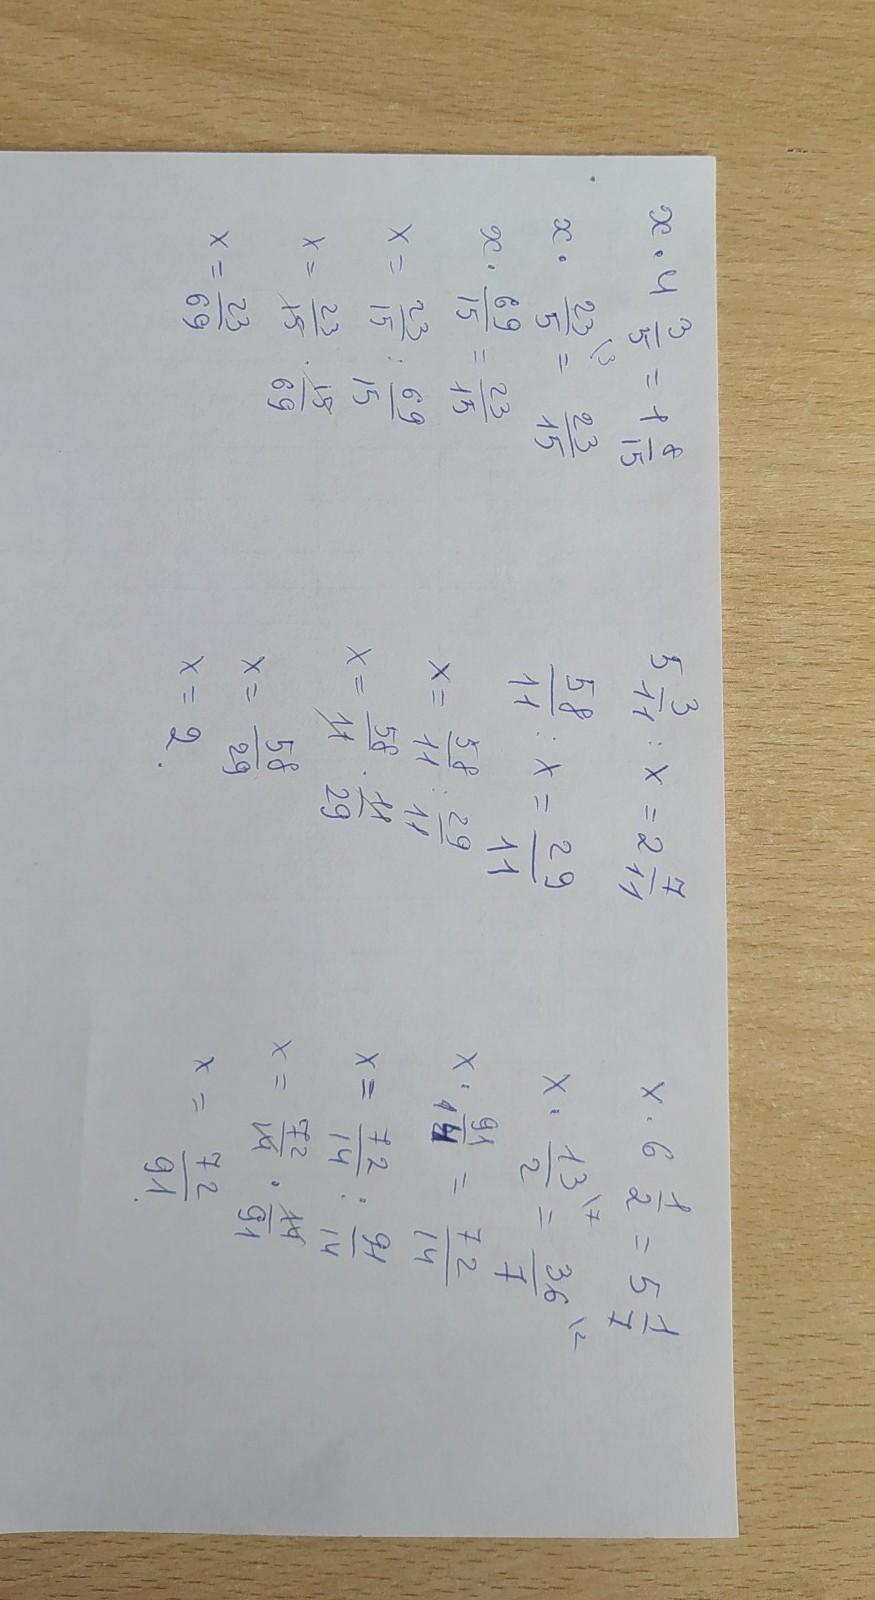 x · 4 3/5 = 1 8/15
x · 23/5 \3 = 23/15
x · 69/15 = 23/15
x = 23/15 : 69/15
x = 23/15 · 15/69
x = 23/69
5 3/11 : x = 2 7/11
58/11 : x = 29/11
x = 58/11 : 29/11
x = 58/11 · 11/29
x = 58/29
x = 2.
x · 6 1/2 = 5 1/7
x · 13/2 \7 = 36/7 \2
x · 91/14 = 72/14
x = 72/14 : 91/14
x = 72/14 · 14/91
x = 72/91.